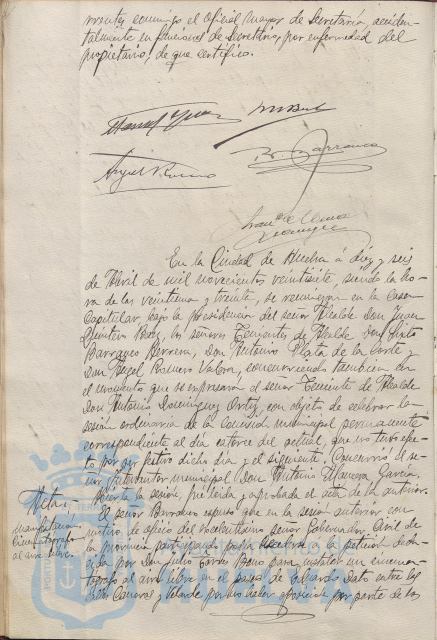 mentes conmigo el Oficial Mayor de Secretaría acciden-
talmente en funciones de Secretario, por enfermedad del
propietario, de que certifico.
R. Barranco
Angel Romero
En la Ciudad de Huelva á diez y seis
de Abril de mil novecientos veintisiete, siendo la ho-
ra de las veintiuna y treinta, se reunieron en la Casa
Capitular, bajo la Presidencia del señor Alcalde Don Juan
Quintero Baez, los señores Tenientes de Alcalde Don Sixto
Barranco Herrera, Don Antonio Plata de la Corte y
Don Angel Romero Valera, concurriendo también en
el momento que se expresará el señor Teniente de Alcalde
Don Antonio Domínguez Ortiz, con objeto de celebrar la
sesión ordinaria de la Comisión municipal permanente
correspondiente al día catorce del actual, que no tuvo efec-
to por ser festivo dicho día y el siguiente. Concurrió el se-
ñor Interventor municipal Don Antonio
García.
Abierta la sesión, fué leída y aprobada el acta de la anterior.
El señor Barranco expuso que en la sesión anterior con
motivo de oficio del Excelentísimo señor Gobernador Civil de
la provincia participando la petición dedu-
cida por Don Julio para instalar un cinema-
tógrafo al aire libre en el paseo de Eduardo Dato entre las
calles Cánovas y Velarde por no haber oposición por parte de la
cinematógrafo
al aire libre.